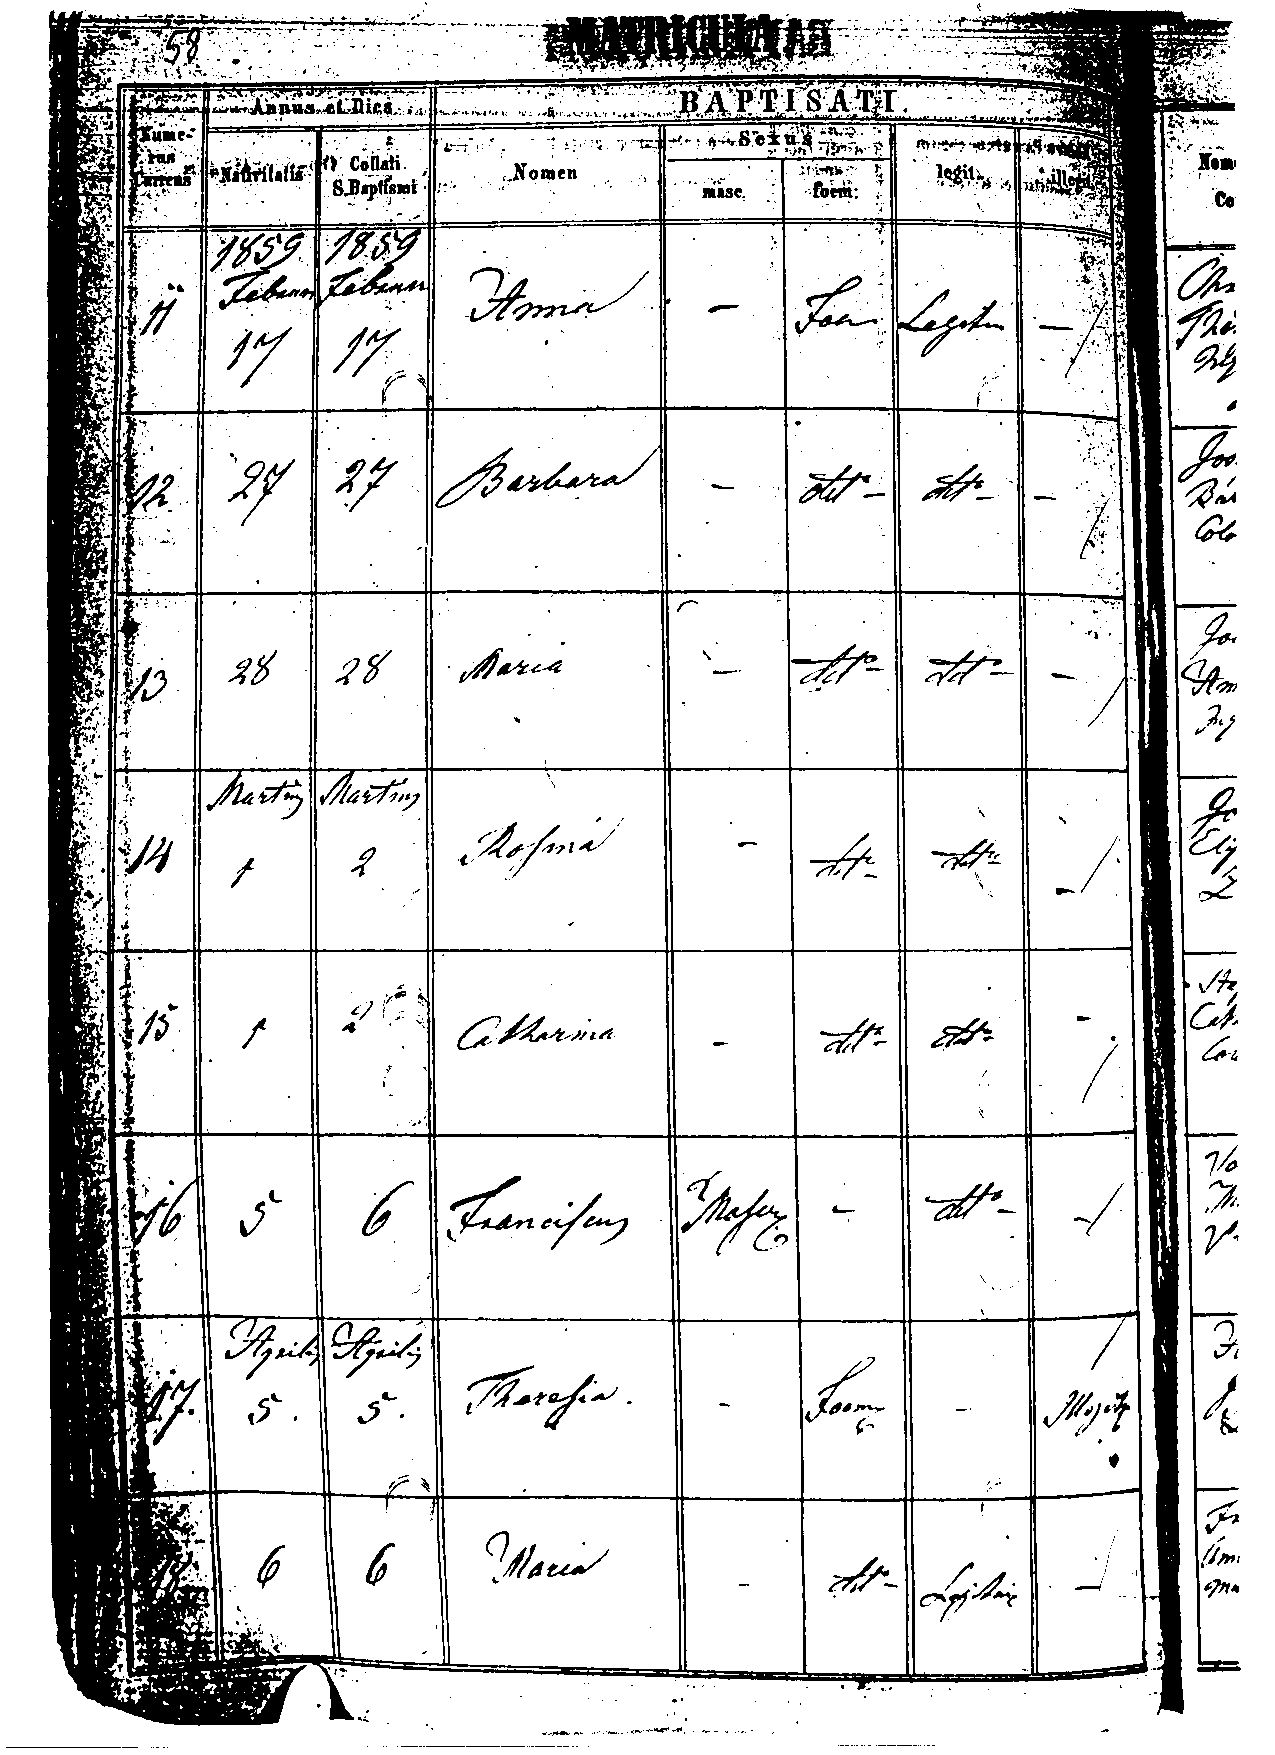 58
MATRICULA
Annus et Dies
BAPTISATI.
Numerus Currens
Nativitatis
Collati S. Baptismi
Nomen
Sexus
masc.
foem.
legit.
illegit.
11 1859 Februar 17 1859 Februar 17 Anna - Foem Legitim -
12 27 27 Barbara - dtto - dtto - -
13 28 28 Maria - dtto - dtto - -
14 Martius 1 Martius 2 Rosina - dtto - dtto - -
15 1 2 Catharina - dtto - dtto - -
16 5 6 Franciscus Masc - dtto - -
17. Aprilis 5. Aprilis 5. Theresia. - Foem -
18 6 6 Maria - dtto - Legitim -